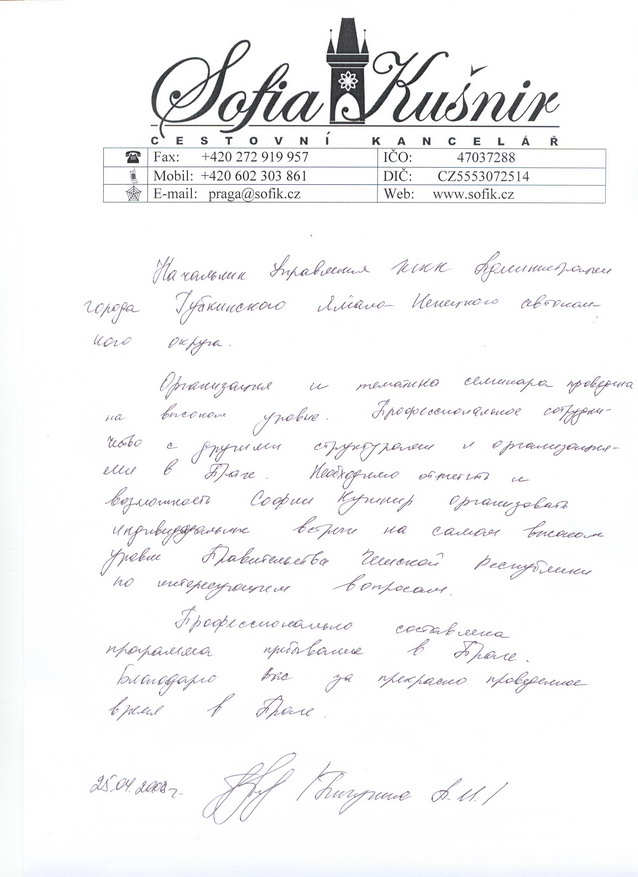 Sofia Kušnir
CESTOVNÍ KANCELÁŘ
Fax: +420 272 919 957 IČO: 47037288
Mobil: +420 602 303 861 DIČ: CZ5553072514
E-mail: praga@sofik.cz Web: www.sofik.cz
Начальник Управления ЖКК Администрации
города Губкинского Ямало-Ненецкого автоном
ного округа.
Организация и тематика семинара проведена
на высоком уровне. Профессиональное сотрудни-
чество с другими структурами и организация-
ми в Праге. Необходимо отметить и
возможность Софии Кушнир организовать
индивидуальные встречи на самом высоком
уровне Правительства Чешской Республики
по интересующим вопросам.
Профессионально составлена
программа пребывания в Праге.
Благодарю Вас за прекрасно проведенное
время в Праге.
25.04.2008г. А.И./